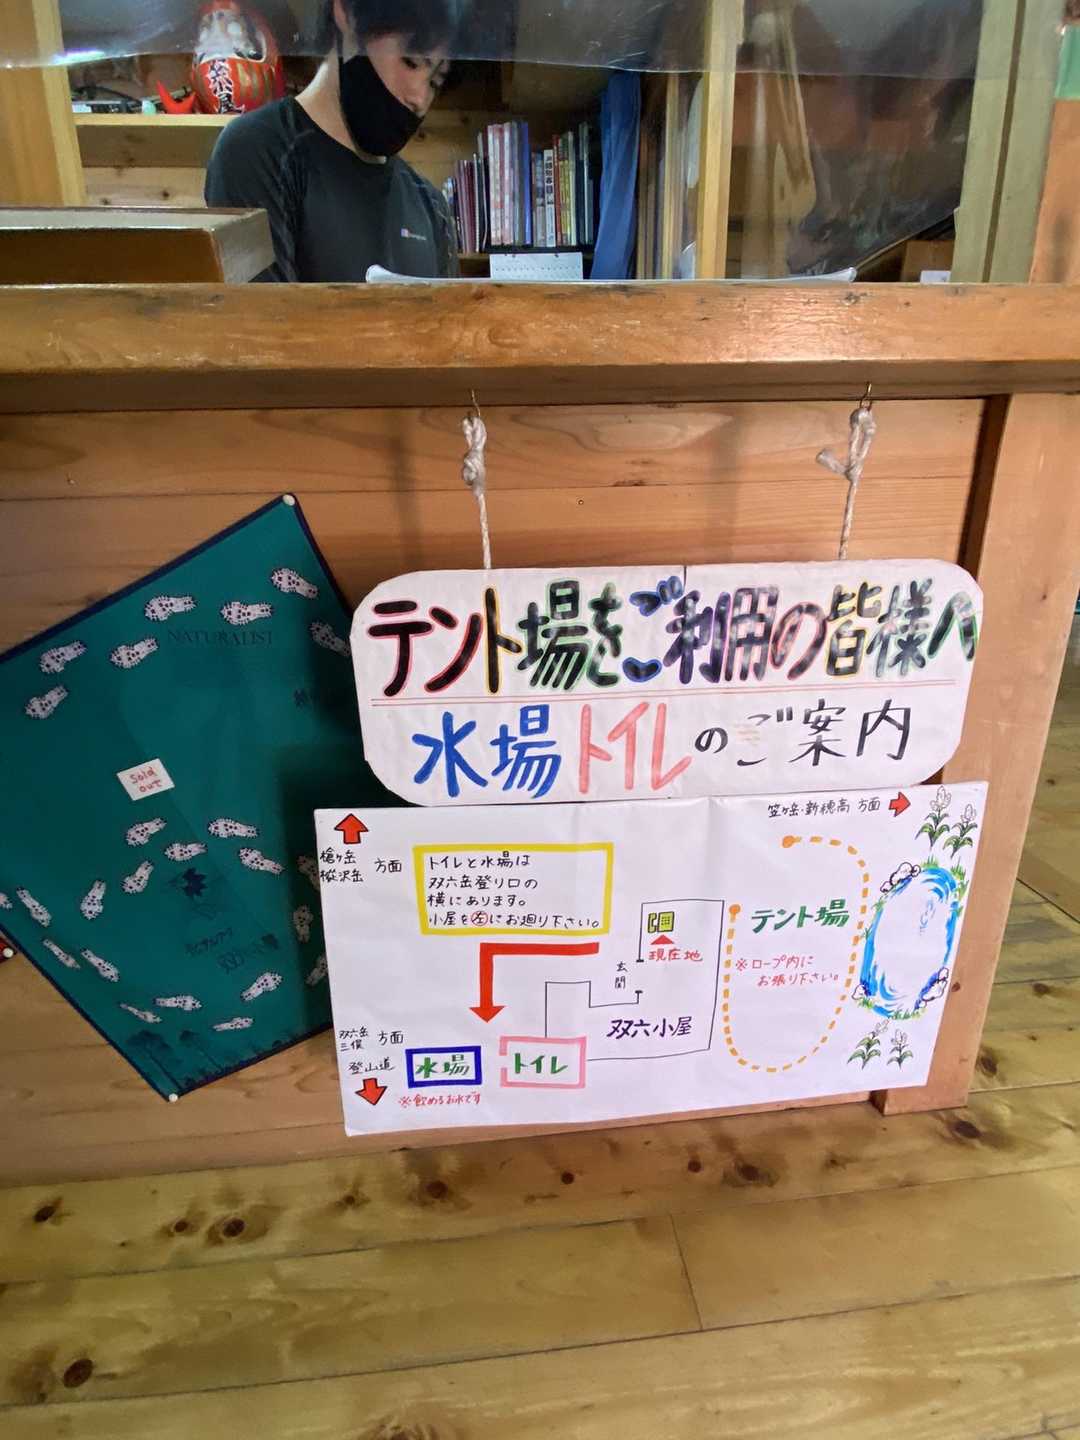 NATURALIST
Sold
out
テント場をご利用の皆様へ
水場トイレのご案内
笠ヶ岳・新穂高 方面
槍ヶ岳
樅沢岳 方面
トイレと水場は
双六岳登り口の
横にあります。
小屋を左にお廻り下さい。
現在地
玄関
双六小屋
テント場
※ロープ内に
お張り下さい。
双六岳
三俣 方面
登山道
水場
トイレ
※飲めるお水です